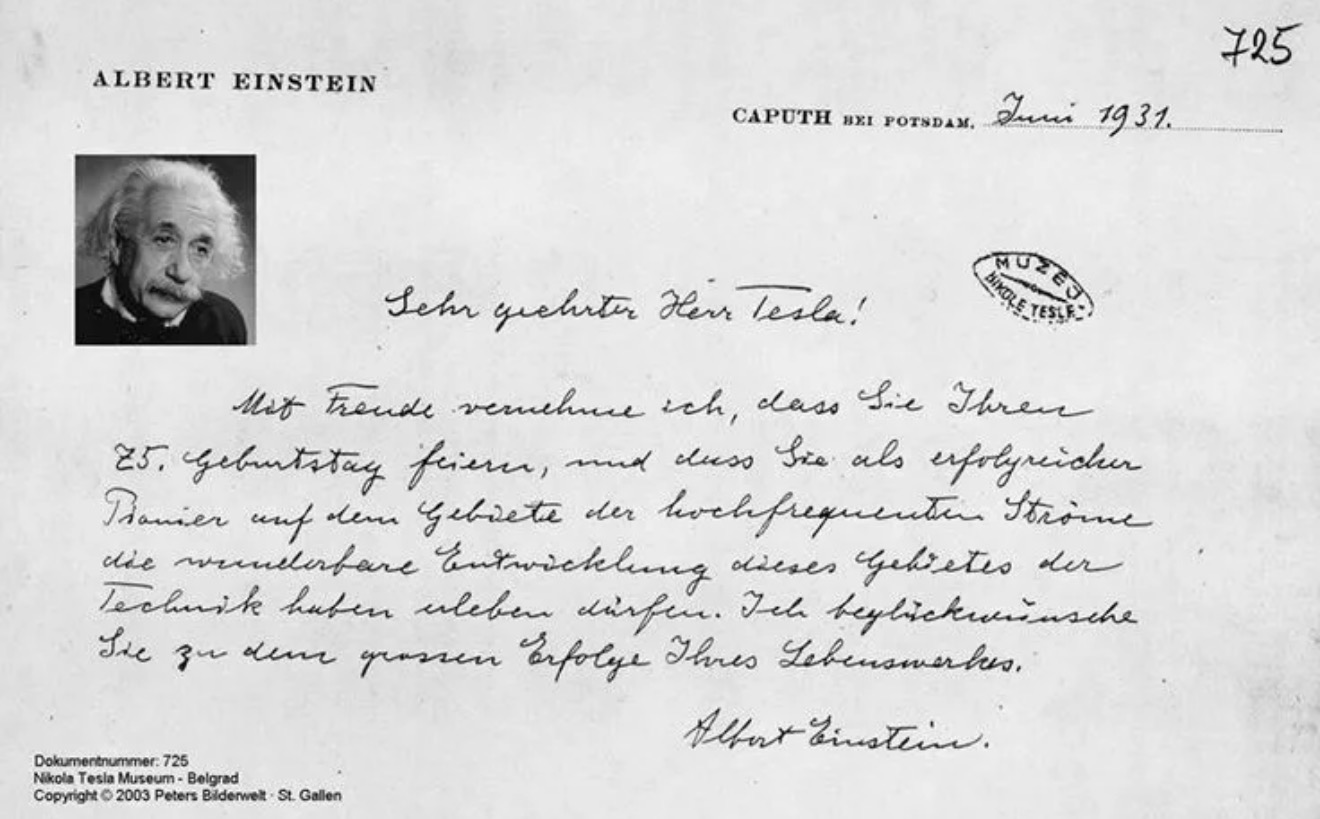 725
ALBERT EINSTEIN
CAPUTH BEI POTSDAM, Juni 1931.
MUZEJ
NIKOLE TESLE
Sehr geehrter Herr Tesla!
Mit Freude vernehme ich, dass Sie Ihren
75. Geburtstag feiern, und dass Sie als erfolgreicher
Pionier auf dem Gebiete der hochfrequenten Ströme
die wunderbare Entwicklung dieses Gebietes der
Technik haben erleben dürfen. Ich beglückwünsche
Sie zu dem grossen Erfolge Ihres Lebenswerkes.
Albert Einstein.
Dokumentnummer: 725
Nikola Tesla Museum - Belgrad
Copyright © 2003 Peters Bilderwelt · St. Gallen